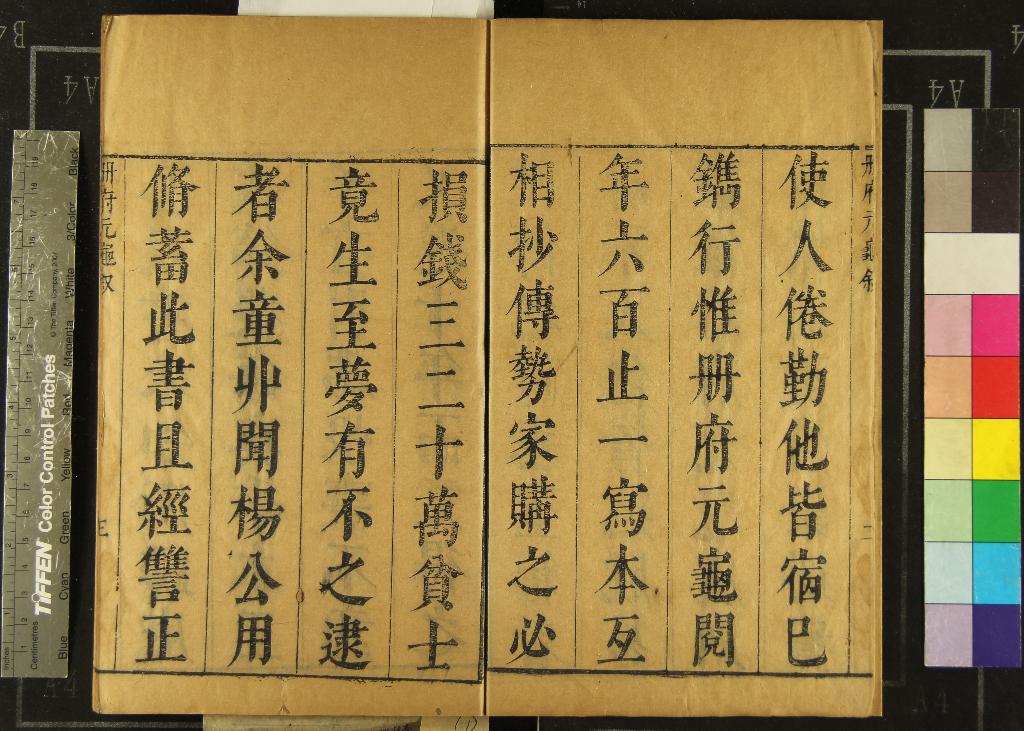 册府元龜叙
二
使人倦勤他皆宿已
鐫行惟册府元龜閱
年六百止一寫本互
相抄傳勢家購之必
損錢三二十萬貧士
竟生至夢有不之逮
者余童丱聞楊公用
脩蓄此書且經讐正
册府元龜叙
三
TIFFEN Color Control Patches
© The Tiffen Company
Inches
Centimetres
Blue
Cyan
Green
Yellow
Red
Magenta
White
3/Color
Black
A4
A4
B4